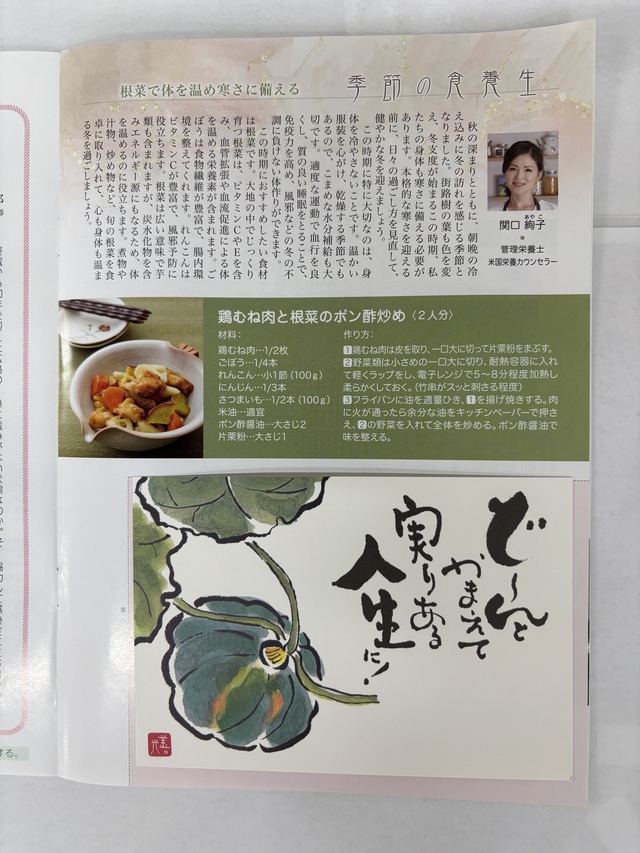 季節の食養生
根菜で体を温め寒さに備える
あやこ
関口 絢子
管理栄養士
米国栄養カウンセラー
秋の深まりとともに、朝晩の冷
え込みに冬の訪れを感じる季節と
なりました。街路樹の葉も色を変
え、冬支度が始まるこの時期、私
たちの身体も寒さに備える必要が
あります。本格的な寒さを迎える
前に、日々の過ごし方を見直して、
健やかな冬を迎えましょう。
この時期に特に大切なのは、身
体を冷やさないことです。温かい
服装を心がけ、乾燥する季節でも
あるので、こまめな水分補給も大
切です。適度な運動で血行を良
くし、質の良い睡眠をとることで、
免疫力を高め、風邪などの冬の不
調に負けない体作りができます。
この時期におすすめしたい食材
は根菜です。大地の中でじっくり
育つ根菜は、ビタミンCやEを含
み、血管拡張や血流促進による体
を温める栄養素が含まれます。ご
ぼうは食物繊維が豊富で、腸内環
境を整えてくれます。れんこんは
ビタミンCが豊富で、風邪予防に
役立ちます。根菜は広い意味で芋
類も含まれますが、炭水化物を含
みエネルギー源にもなるため、体
を温めるのに役立ちます。煮物や
汁物、炒め物など、旬の根菜を食
卓に取り入れて、心も身体も温ま
る冬を過ごしましょう。
鶏むね肉と根菜のポン酢炒め〈2人分〉
材料：
鶏むね肉…1/2枚
ごぼう…1/4本
れんこん…小1節（100g）
にんじん…1/3本
さつまいも…1/2本（100g）
米油…適宜
ポン酢醤油…大さじ2
片栗粉…大さじ1
作り方：
1鶏むね肉は皮を取り、一口大に切って片栗粉をまぶす。
2野菜類は小さめの一口大に切り、耐熱容器に入れ
て軽くラップをし、電子レンジで5〜8分程度加熱し
柔らかくしておく。（竹串がスッと刺さる程度）
3フライパンに油を適量ひき、1を揚げ焼きする。肉
に火が通ったら余分な油をキッチンペーパーで押さ
え、2の野菜を入れて全体を炒める。ポン酢醤油で
味を整える。
ど〜んと
かまえて
実りある
人生に！
する。